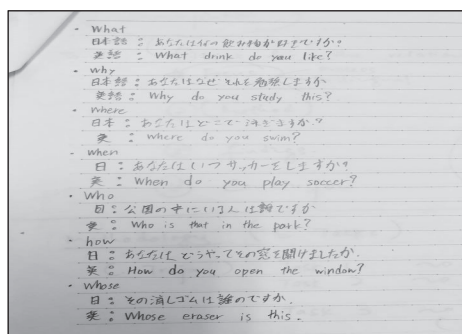 ・ What
日本語：あなたは何の飲み物が好きですか？
英語：What drink do you like?
・ why
日本語：あなたはなぜそれを勉強しますか
英語：Why do you study this?
・ Where
日本：あなたはどこで泳ぎますか？
英：Where do you swim?
・ when
日：あなたはいつサッカーをしますか？
英：When do you play soccer?
・ Who
日：公園の中にいる人は誰ですか
英：Who is that in the park?
・ how
日：あなたはどうやってその窓を開けましたか.
英：How do you open the window?
・ Whose
日：その消しゴムは誰のですか.
英：Whose eraser is this.